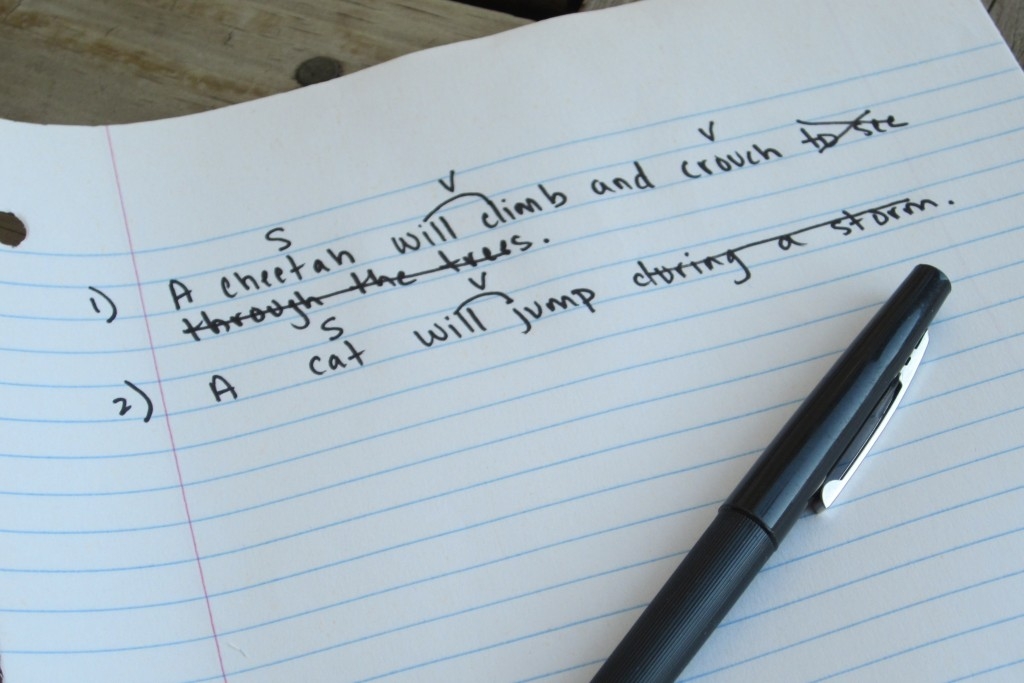 S V V
1) A cheetah will climb and crouch to see
through the trees.
S V
2) A cat will jump during a storm.